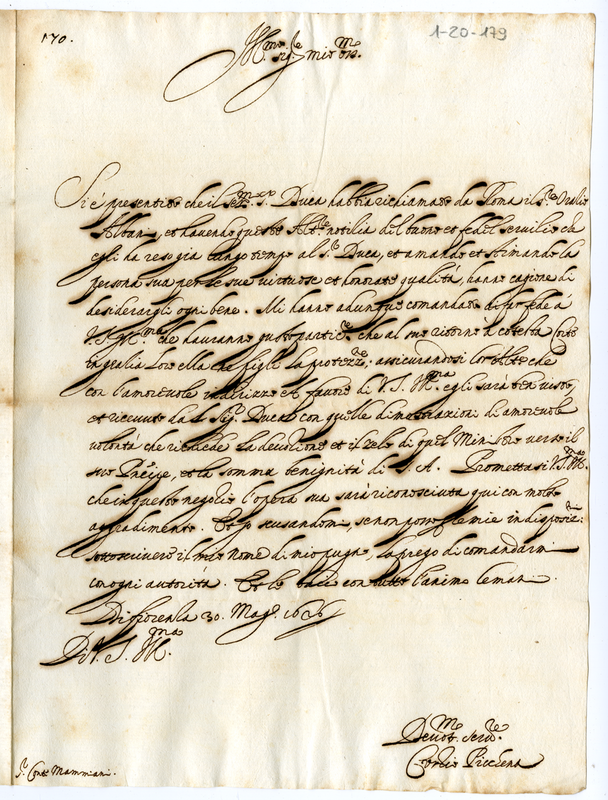 170.
1-20-179
Ill.mo sig.re mio oss.mo
Si è presentito che il Ser.mo S.r Duca habbia richiamato da Roma il S.r Oratio
Albani, et havendo queste Alt.ze notitia del buono et fedel servitio che
egli ha reso già lungo tempo al S.r Duca, et amando et stimando la
persona sua per le sue virtuose et honorate qualità, hanno cagione di
desiderargli ogni bene. Mi hanno adunque comandato di far fede à
V. S. Ill.ma che hauranno gusto partic.re che al suo ritorno à cotesta Corte
in gratia Loro ella ne pigli la protezz.ne, assicurandosi lor Alte che
con l'amorevole indirizzo et favore di V. S. Ill.ma egli sarà ben visto,
et ricevuto dal Sig.r Duca con quelle dimostrazioni di amorevole
volontà che richiede la devotione et il zelo di quel Ministro verso il
suo Principe, et la somma benignità di S. A. Promettasi V. S. Ill.ma
che in questo negotio l'opera sua sarà riconosciuta qui con molto
aggradimento. Et scusandomi, se non posso per le mie indisposit.ni
sottoscrivere il mio nome di mio pugno, la prego di comandarmi
con ogni autorità. Et le bacio con tutto l'animo le mani.
Di Fiorenza 30. Mag.o 1626
Di V. S. Ill.ma
Devot.mo Serv.re
Curtio Picchena
S.r Conte Mammiani.